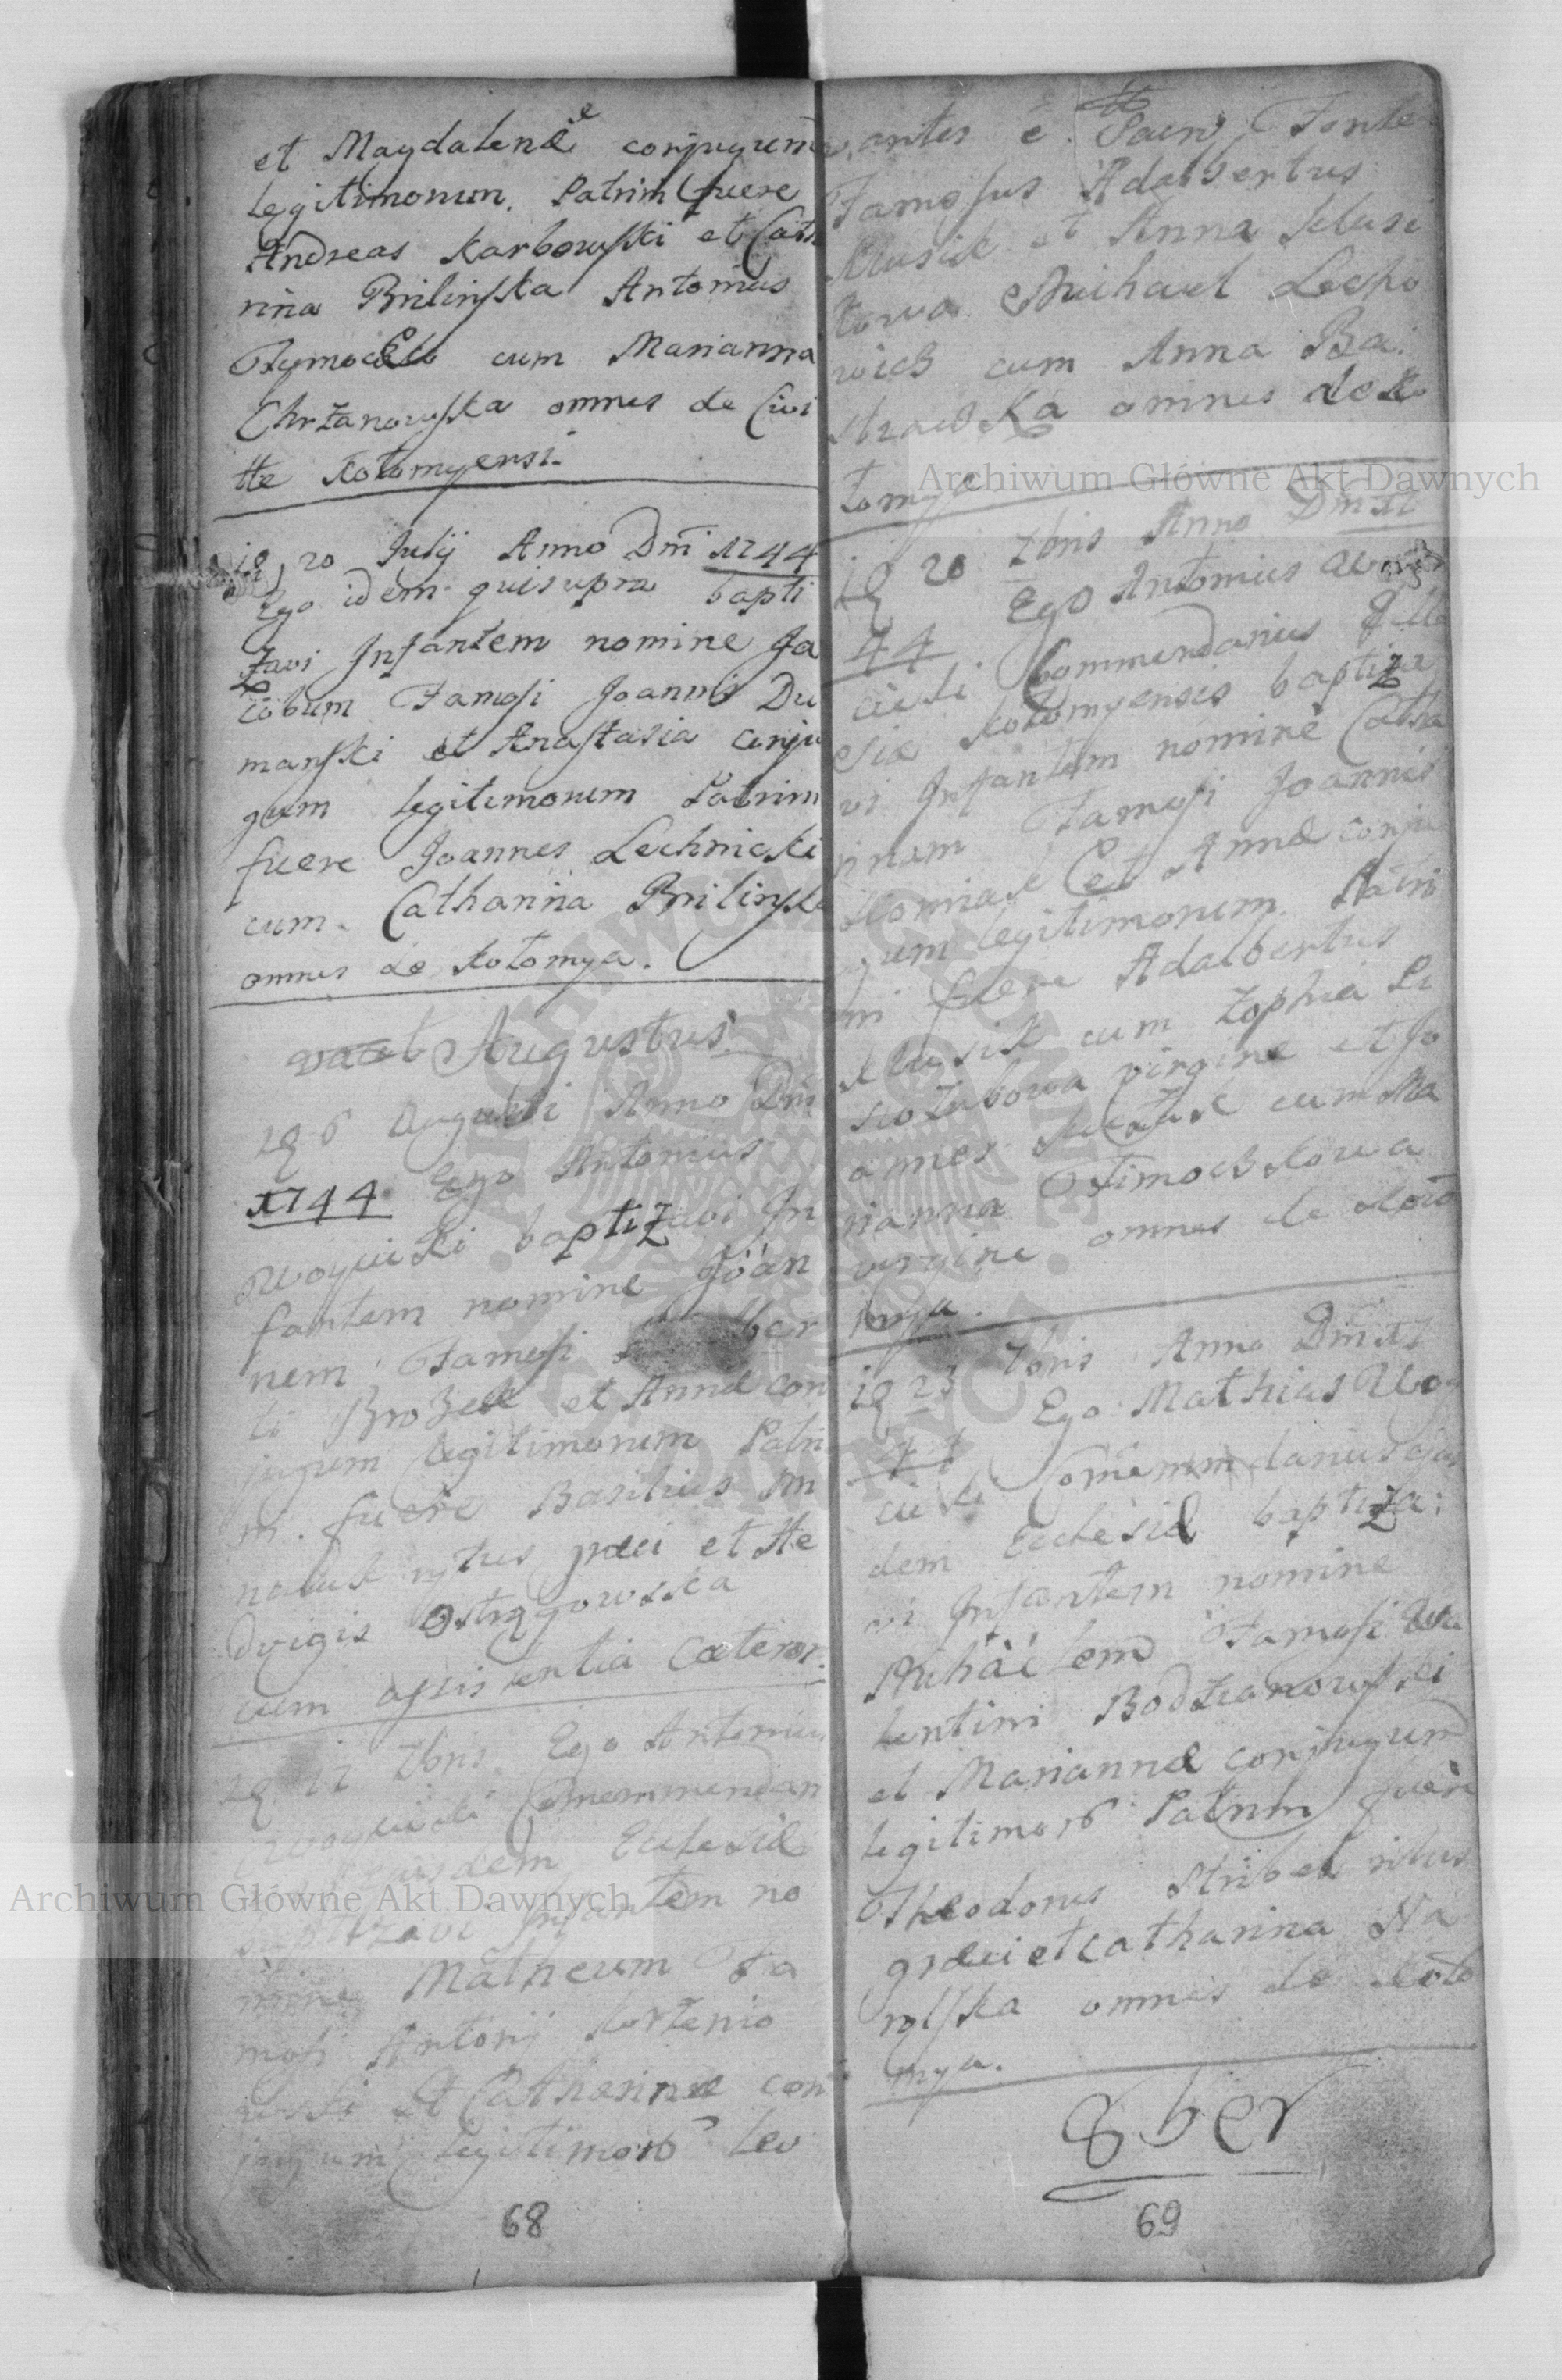 et Magdalenæ conjugum
legitimorum. Patrini fuere
Andreas Karbowski et Catha
rina Brilinska Antonius
cum Marianna
Chrzanowska omnes de Civi
tte Kołomyensi.
20 Julij Anno Dni 1744
Ego idem qui supra bapti
zavi Infantem nomine Ja
cobum Famosi Joannis Du
manski et Anastasia conju
gum legitimorum Patrini
fuere Joannes Lechnicki
cum Catharina Brilinska
omnes de Kołomya.
vacat Augustus
6 Augusti Anno Dni
1744 Ego Antonius
Woycicki baptizavi In
fantem nomine Joan
nem Famosi ber
ti Brozek et Annæ con
jugum legitimorum Patri
ni fuere Basilius
rytus græci et He
dvigis Ostrągowska
cum assistentia Cæteror.
7bris Ego Antonius
Woycicki Commendan
ejusdem Ecclesiæ
baptizavi Infantem no
mine Matheum Fa
mosi Antonij Korzenio
wski et Catharinæ con
jugum legitimor Lev
68
antes e Sacro Fonte
Famosus Adalbertus
Klusik et Anna Klusi
kowa Michael Lecho
wicz cum Anna
omnes de Ko
łomya
20 7bris Anno Dni 17
44 Ego Antonius Woy
cicki Commendarius Eccle
siæ Kołomyensis baptiza
vi Infantem nomine Catha
rinam Famosi Joannis
et Annæ conju
gum legitimorum Patri
ni fuere Adalbertus
Klusik cum Zophia
virgine et Jo
annes cum Ma
rianna Timochłowa
virgine omnes de Koło
mya.
23 7bris Anno Dni 17
44 Ego Mathias Woy
cicki Commendarius ejus
dem Ecclesiæ baptiza:
vi Infantem nomine
Michäelem Famosi Va
lentini Bodzianowski
et Mariannæ conjugum
legitimor Patrini fuere
Theodorus ritus
græci et Catharina Na
rolska omnes de Koło
mya.
8ber
69
Archiwum Główne Akt Dawnych
Archiwum Główne Akt Dawnych